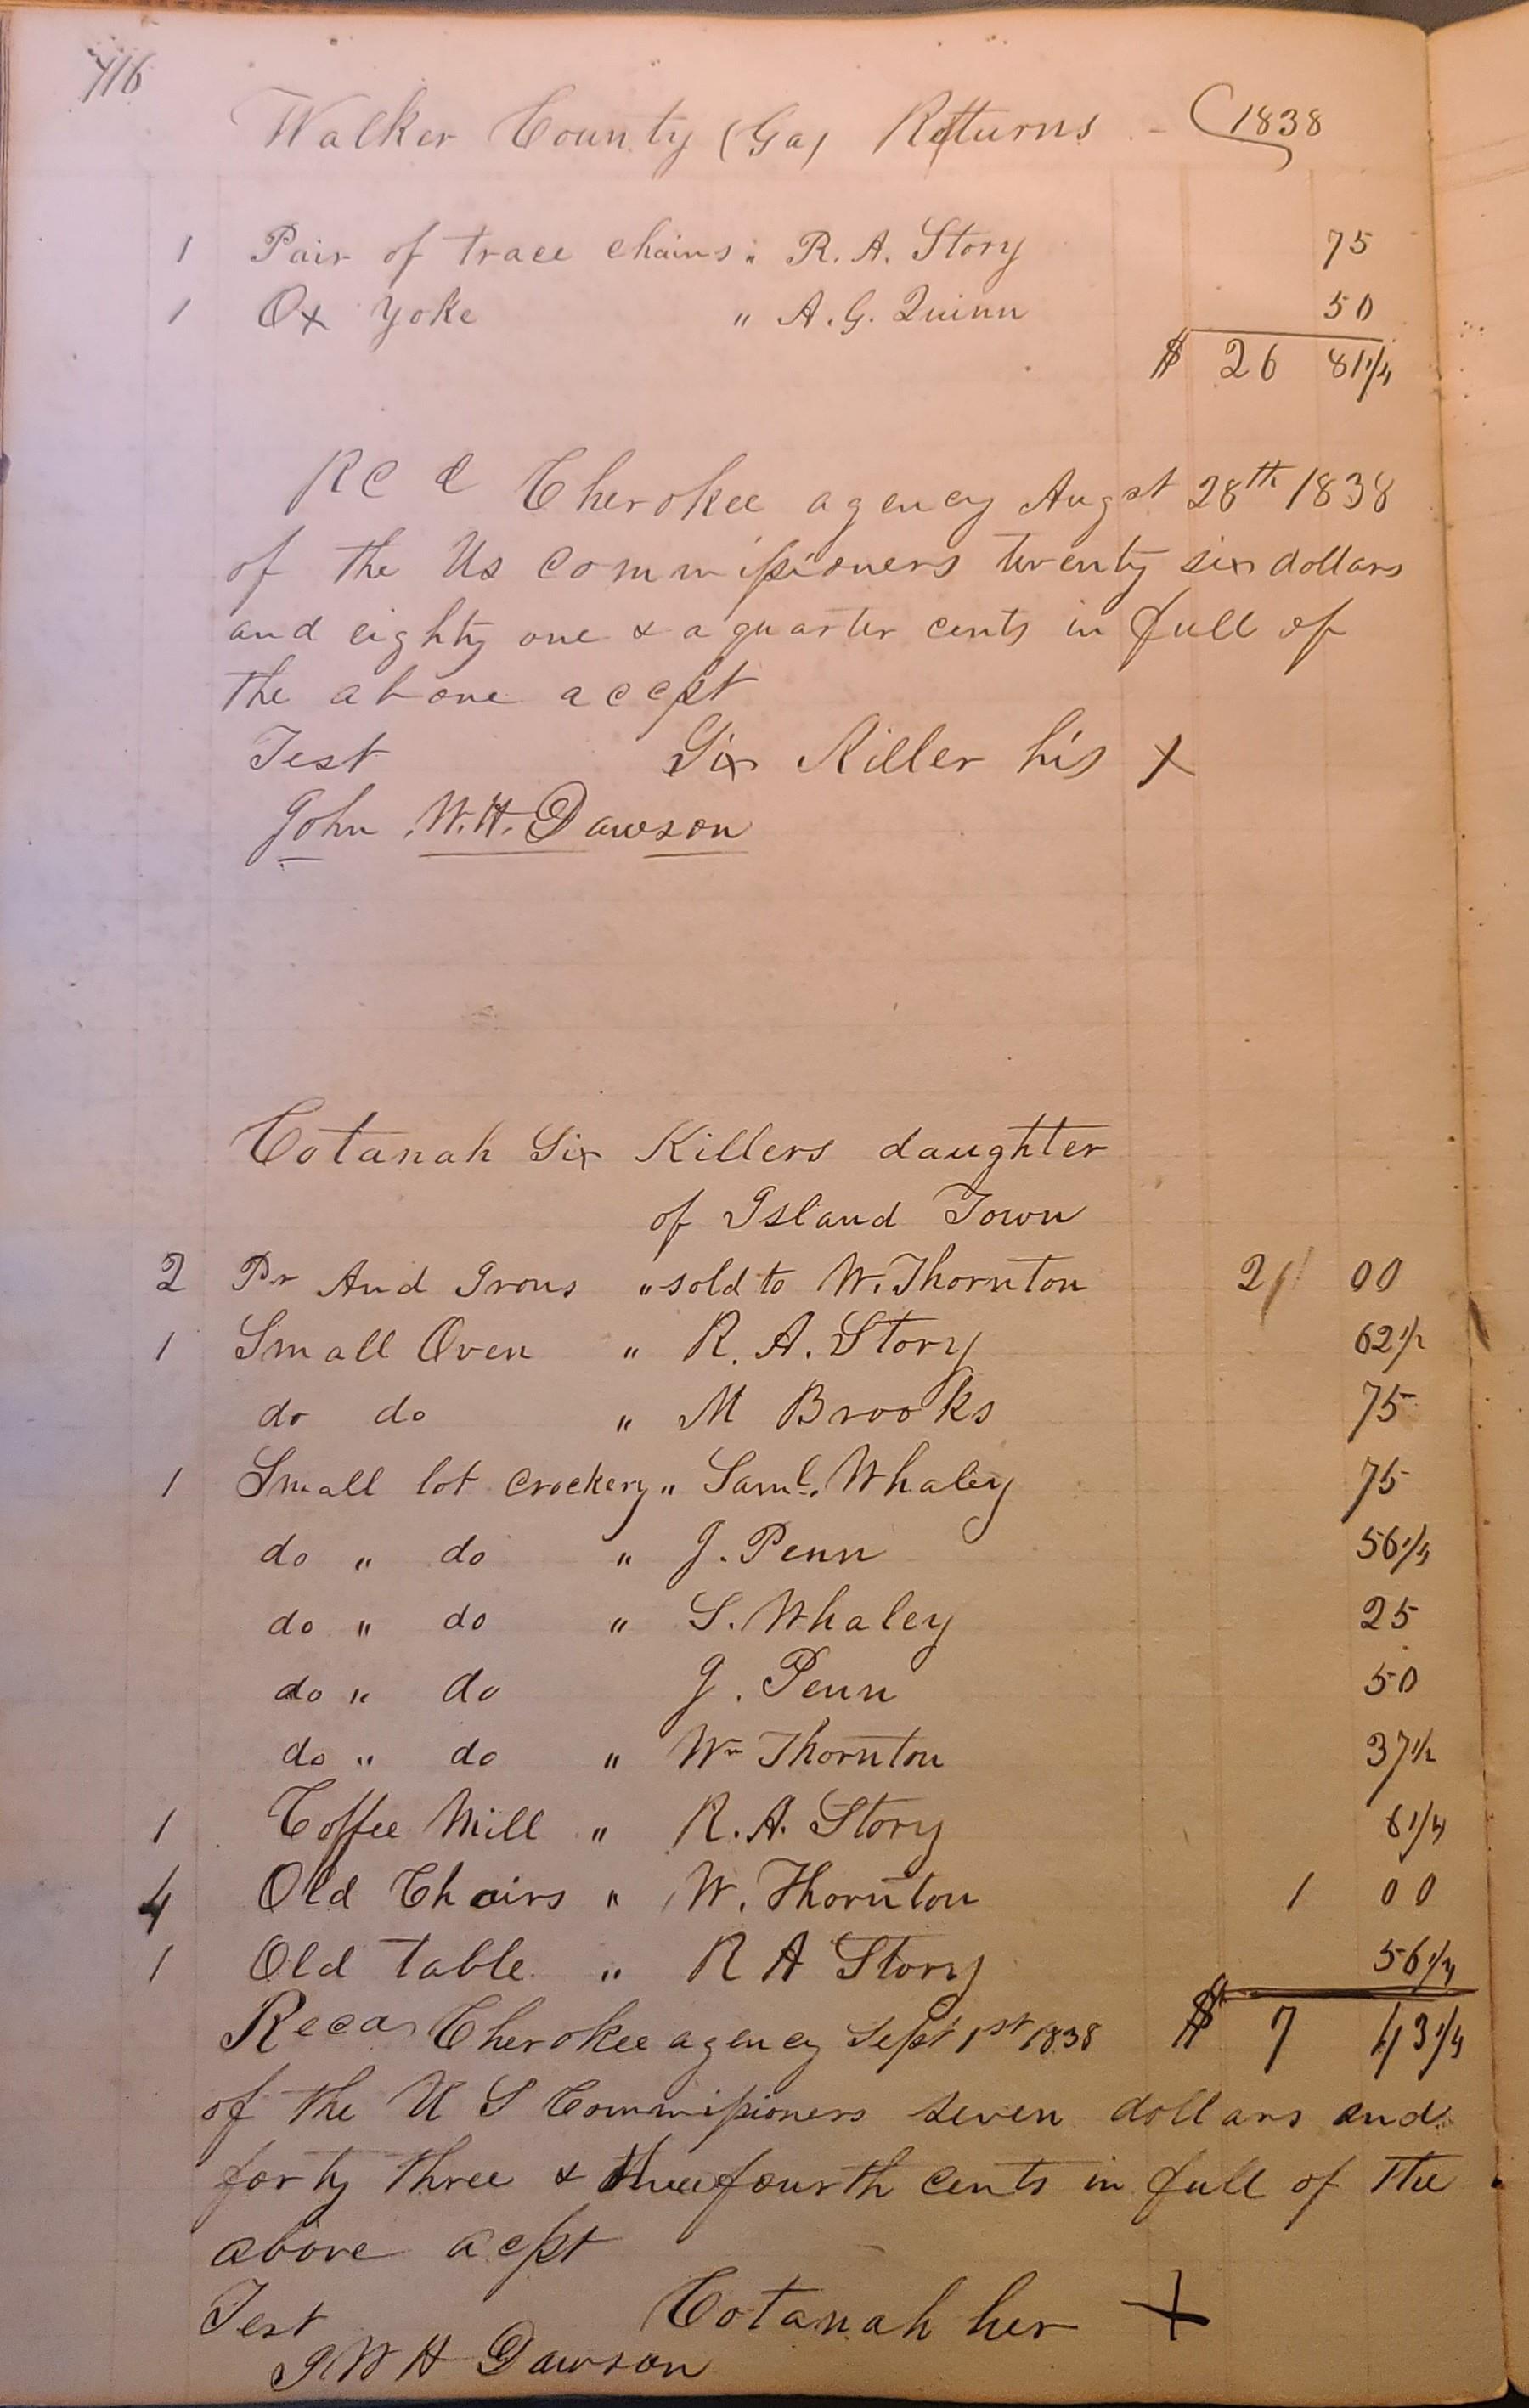 716
Walker County (Ga) Returns - 1838
1 Pair of trace chains " R. A. Story 75
1 Ox Yoke " A. G. Quinn 50
$ 26 81 1/4
Recd Cherokee agency Augst 28th 1838
of the Us Commissioners twenty six dollars
and eighty one & a quarter cents in full of
the above accpt
Test Six Killer his X
John W. H. Dawson
Cotanah Six Killers daughter
of Island Town
2 Pr And Irons " sold to W. Thornton 2 00
1 Small Oven " R. A. Story 62 1/2
do do " M Brooks 75
1 Small lot crockery " Saml. Whaley 75
do " do " J. Penn 56 1/4
do " do " S. Whaley 25
do " do J. Penn 50
do " do " Wm Thornton 37 1/2
1 Coffee Mill " R. A. Story 6 1/4
4 Old Chairs " W. Thornton 1 00
1 Old table " R A Story 56 1/4
Recd Cherokee agency Sept 1st 1838 $ 7 43 1/4
of the U S Commissioners seven dollars and
forty three & three fourth cents in full of the
above acpt
Test Cotanah her X
J W H Dawson